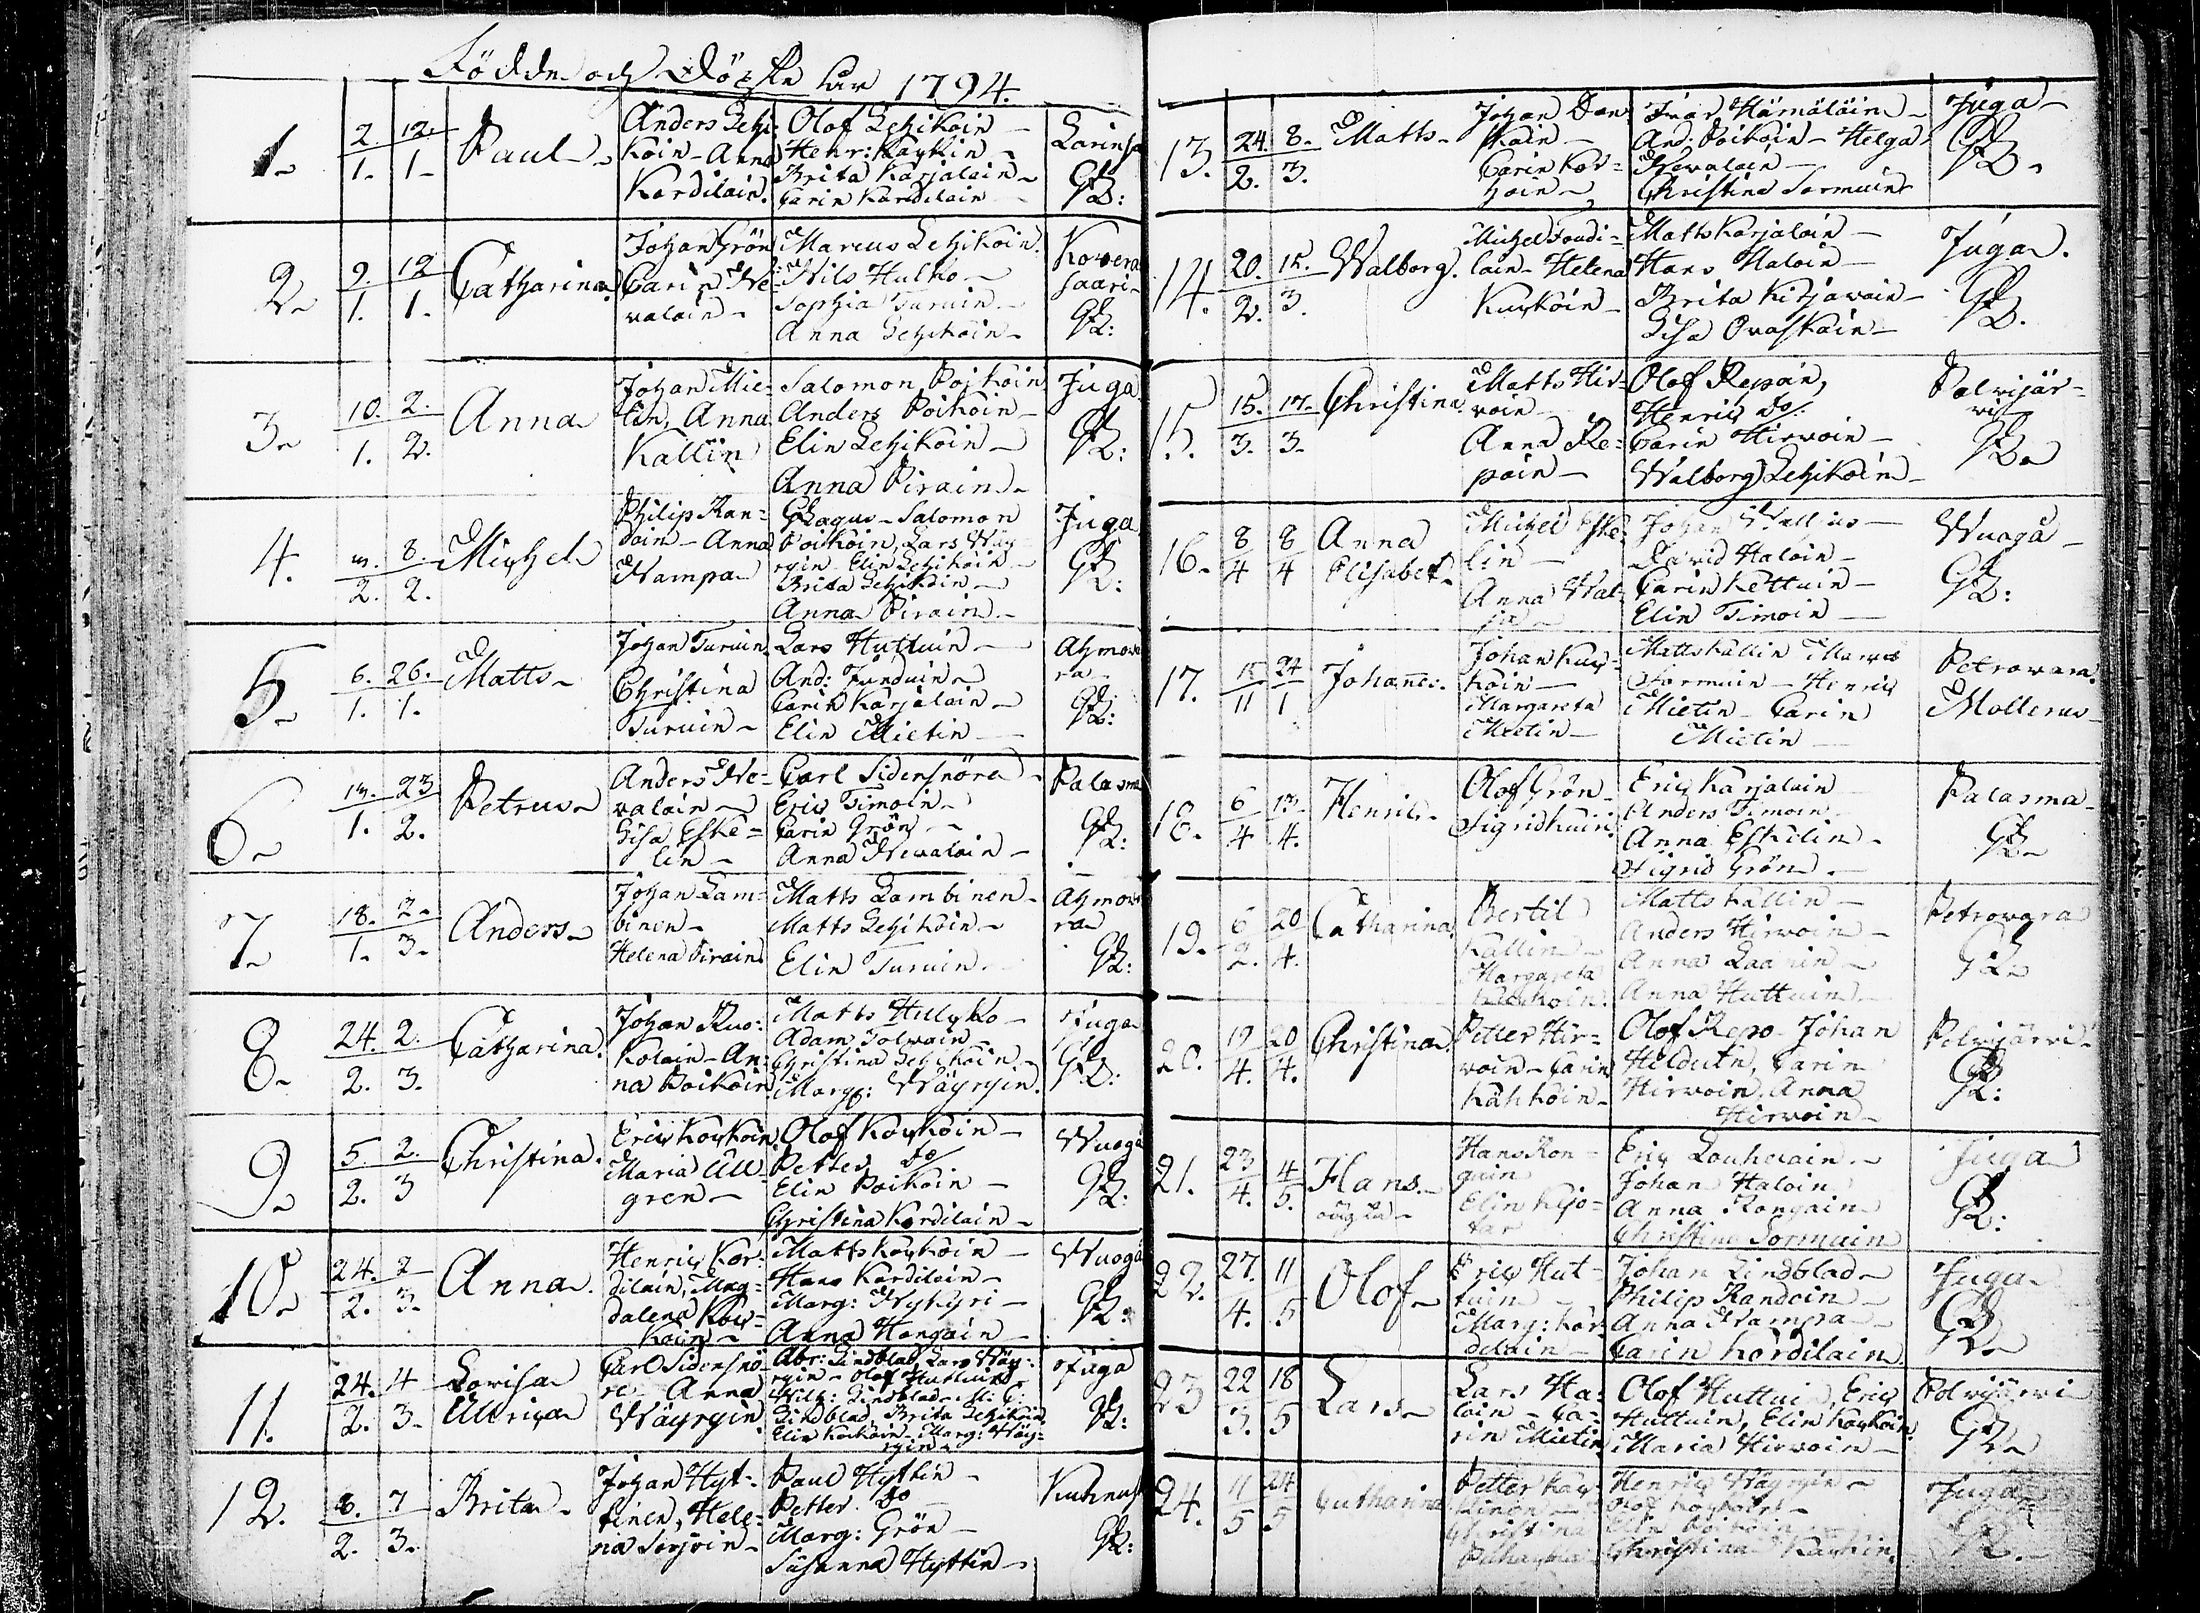 Födde och Döpte år 1794.
1. 2/1. 12./1. Paul
Anders Lehi-
koin - Anna
Kordilain.
Olof Lehikoin
Henr: Kaykin
Brita Karjalain
Carin Kordilain
GB:
2. 9./1. 12/1. Catharina
Johan Grön
Carin Ne-
valain
Marcus Lehikoin
Nils Hulko
Sophia Turuin
Anna Lehikoin
Kowera
saari
GB:
3. 10./1. 2./2. Anna
Johan Mie-
tin, Anna
Kallin
Salomon Poikoin
Anders Poikoin
Elin Lehikoin
Anna Pirain
Juga
GB:
4. 8./2. Michel
Philip Ran-
dain - Anna
Nampa
Salomon
Poikoin, Lars Väy-
ryin - Elin Lehikoin
Brita Lehikoin
Anna Pirain
Juga
GB:
5. 6./1. 26./1. Matts
Johan Turuin
Christina
Turuin
Lars Huttuin
And: Tunduin
Carin Karjalain
Elin Mietin
Ahmowa
ra
GB:
6. 23/2. Petrus
Anders Ne-
valain
Lisa Eske-
lin
Carl Sidensnöre
Eric Timoin
Carin Grön
Anna Nevalain
Palasma
GB:
7. 18./1. 2./3. Anders
Johan Lam-
binen
Helena Pirain
Matts Lambinen
Matts Lehikoin
Elin Turuin
Ahmowa
ra
GB:
8. 24./2. 2./3. Catharina
Johan Ruo-
kolain - An-
na Poikoin
Matts Hulyko
Adam Tolvain
Christina Lehikoin
Marg: Wäyryin
Juga
GB:
9. 5./2. 2./3 Christina
Eric Koykoin
Maria Ull-
gren
Olof Koykoin
Petter do
Elin Poikoin
Christina Kordilain
Wuogå
GB:
10. 24./2. 2/3. Anna
Henric Kor-
dilain, Mag-
dalena Koy-
koin
Matts Koykoin
Hans Kordilain
Marg: Nykyri
Anna Hongain
Wuogå
GB:
11. 24./2. 4/3. Lovisa
Ullrica
Carl Sidensnö-
re - Anna
Wäyryin
Abr: Lindblad, Lars Wäy-
ryin - Olof Huttuin
Wilh: Lindblad - M: C:
Lindblad, Brita Lehikoin,
Elin Koikoin - Marg: Wäy-
ryin
Juga
GB:
12. 8./2. 7/3. Brita
Johan Hyt-
tinen, Hele-
na Sorjoin
Paul Hyttin
Petter do
Marg: Grön
Susanna Hyttin
GB:
13. 24./2. 8./3. Matts
Johan Don
skoin
Carin Kor-
hoin
Ivar Hämäläin
And: Poikoin - Helga
Nevalain
Christina Sormuin
Juga
GB.
14. 20./2. 15./3. Walborg
Michel Toudi-
lain - Helena
Kuykoin
Matts Karjalain
Hans Haloin
Brita Kirjavain
Lisa Ovaskain
Juga.
GB.
15. 15./3. 17./3. Christina
Matts Hir-
voin
Anna Re-
poin
Olof Repoin,
Henric do:
Carin Hirvoin
Walborg Lehikoin
Polvijär-
vi
GB.
16. 8/4 8/4 Anna
Elisabet
Michel Eske-
lin
Anna Wal-
Johan Wallius
David Haloin
Carin Kettuin
Elin Timoin
Wuogå
GB:
17. 15/11 24/1 Johannes.
Johan Kuy-
koin
Margareta
Mietin
Matts Kallin
Sormuin - Henric
Mietin - Carin
Mietin
Petrowara.
Mollerus
18. 6/4 13./4. Henric
Olof Grön
Sigrid Kuin
Eric Karjalain
Anders Timoin
Anna Eskilin
Sigrid Grön
Palasma
GB
19. 6/2. 20/4. Catharina
Bertil
Kallin
Margareta
Matts Kallin
Anders Hirvoin
Anna Laanin
Anna Huttuin
Petrovara
GB
20. 19/4. 20/4. Christina
Petter Hir-
voin - Carin
Kähköin
Olof Repo - Johan
Hilduin, Carin
Hirvoin, Anna
Hirvoin
Polvijärvi
GB:
21. 23/4. 4/5. Hans
Hans Ron-
gain
Elin
Eric Louhelain
Johan Haloin
Anna Rongain
Christina Sormuin
Juga
GB:
22. 27./4. 11/5 Olof
Eric Hut-
tuin
Marg: Kor-
dilain
Johan Lindblad
Philip Randoin
Anna Nampa
Carin Kordilain
Juga
GB
23 22/3. 18/5 Lars
Lars Ha-
loin - Ca-
rin Mietin
Olof Huttuin, Eric
Huttuin, Elin Koykoin
Maria Hirvoin
Polvijärvi
GB
24. 11/5 24/5 Catharina
Petter
Christina
Henric Wäyryin
Olof Koykoin
Elin Poikoin
Christina
Juga
GB.